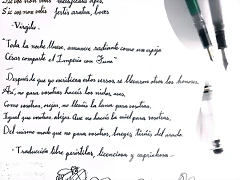 Sic vos non vobis
fertis aratra, boves
-Virgilio.
"Toda la noche llueve, amanece radiando como un espejo
César comparte el Imperio con Júpiter"
Después que yo escribiera estos versos se llevaron otros los honores.
Así, no para vosotras hacéis los nidos, aves,
Como vosotras, ovejas, no lleváis la lana para vosotras,
Igual que vosotras, abejas. Que no hacéis la miel para vosotras,
Del mismo modo que no para vosotros, bueyes, tiráis del arado.
-Traducción libre, licenciosa y caprichosa-